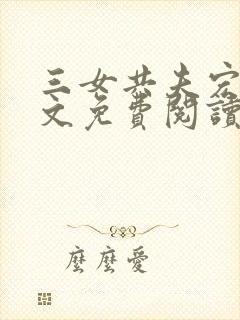 三女共夫宏
文免費閱讀
麼麼愛